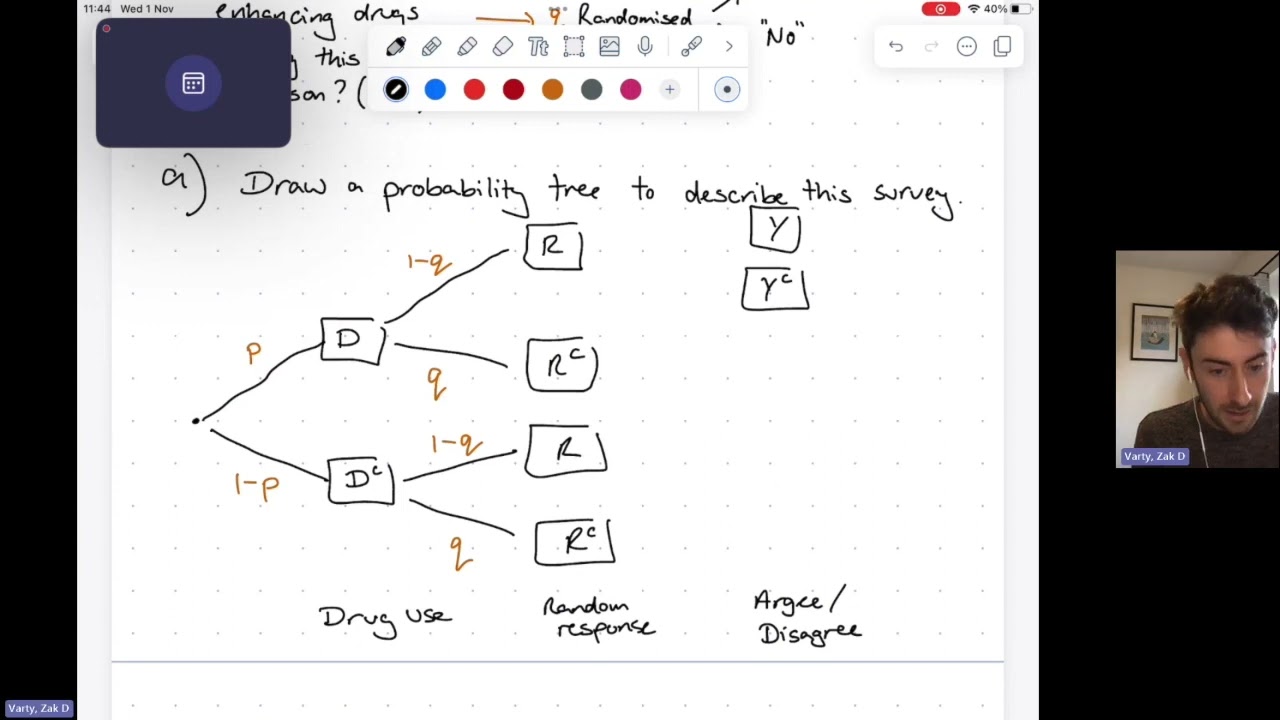 11:44 Wed 1 Nov
40%
enhancing drugs
q Randomised
"No"
this
son? (
Tt
a) Draw a probability tree to describe this survey.
1-q
R
Y
Y^c
p
D
q
R^c
1-p
D^c
1-q
R
q
R^c
Drug use
Random
response
Argee/
Disagree
Varty, Zak D
Varty, Zak D